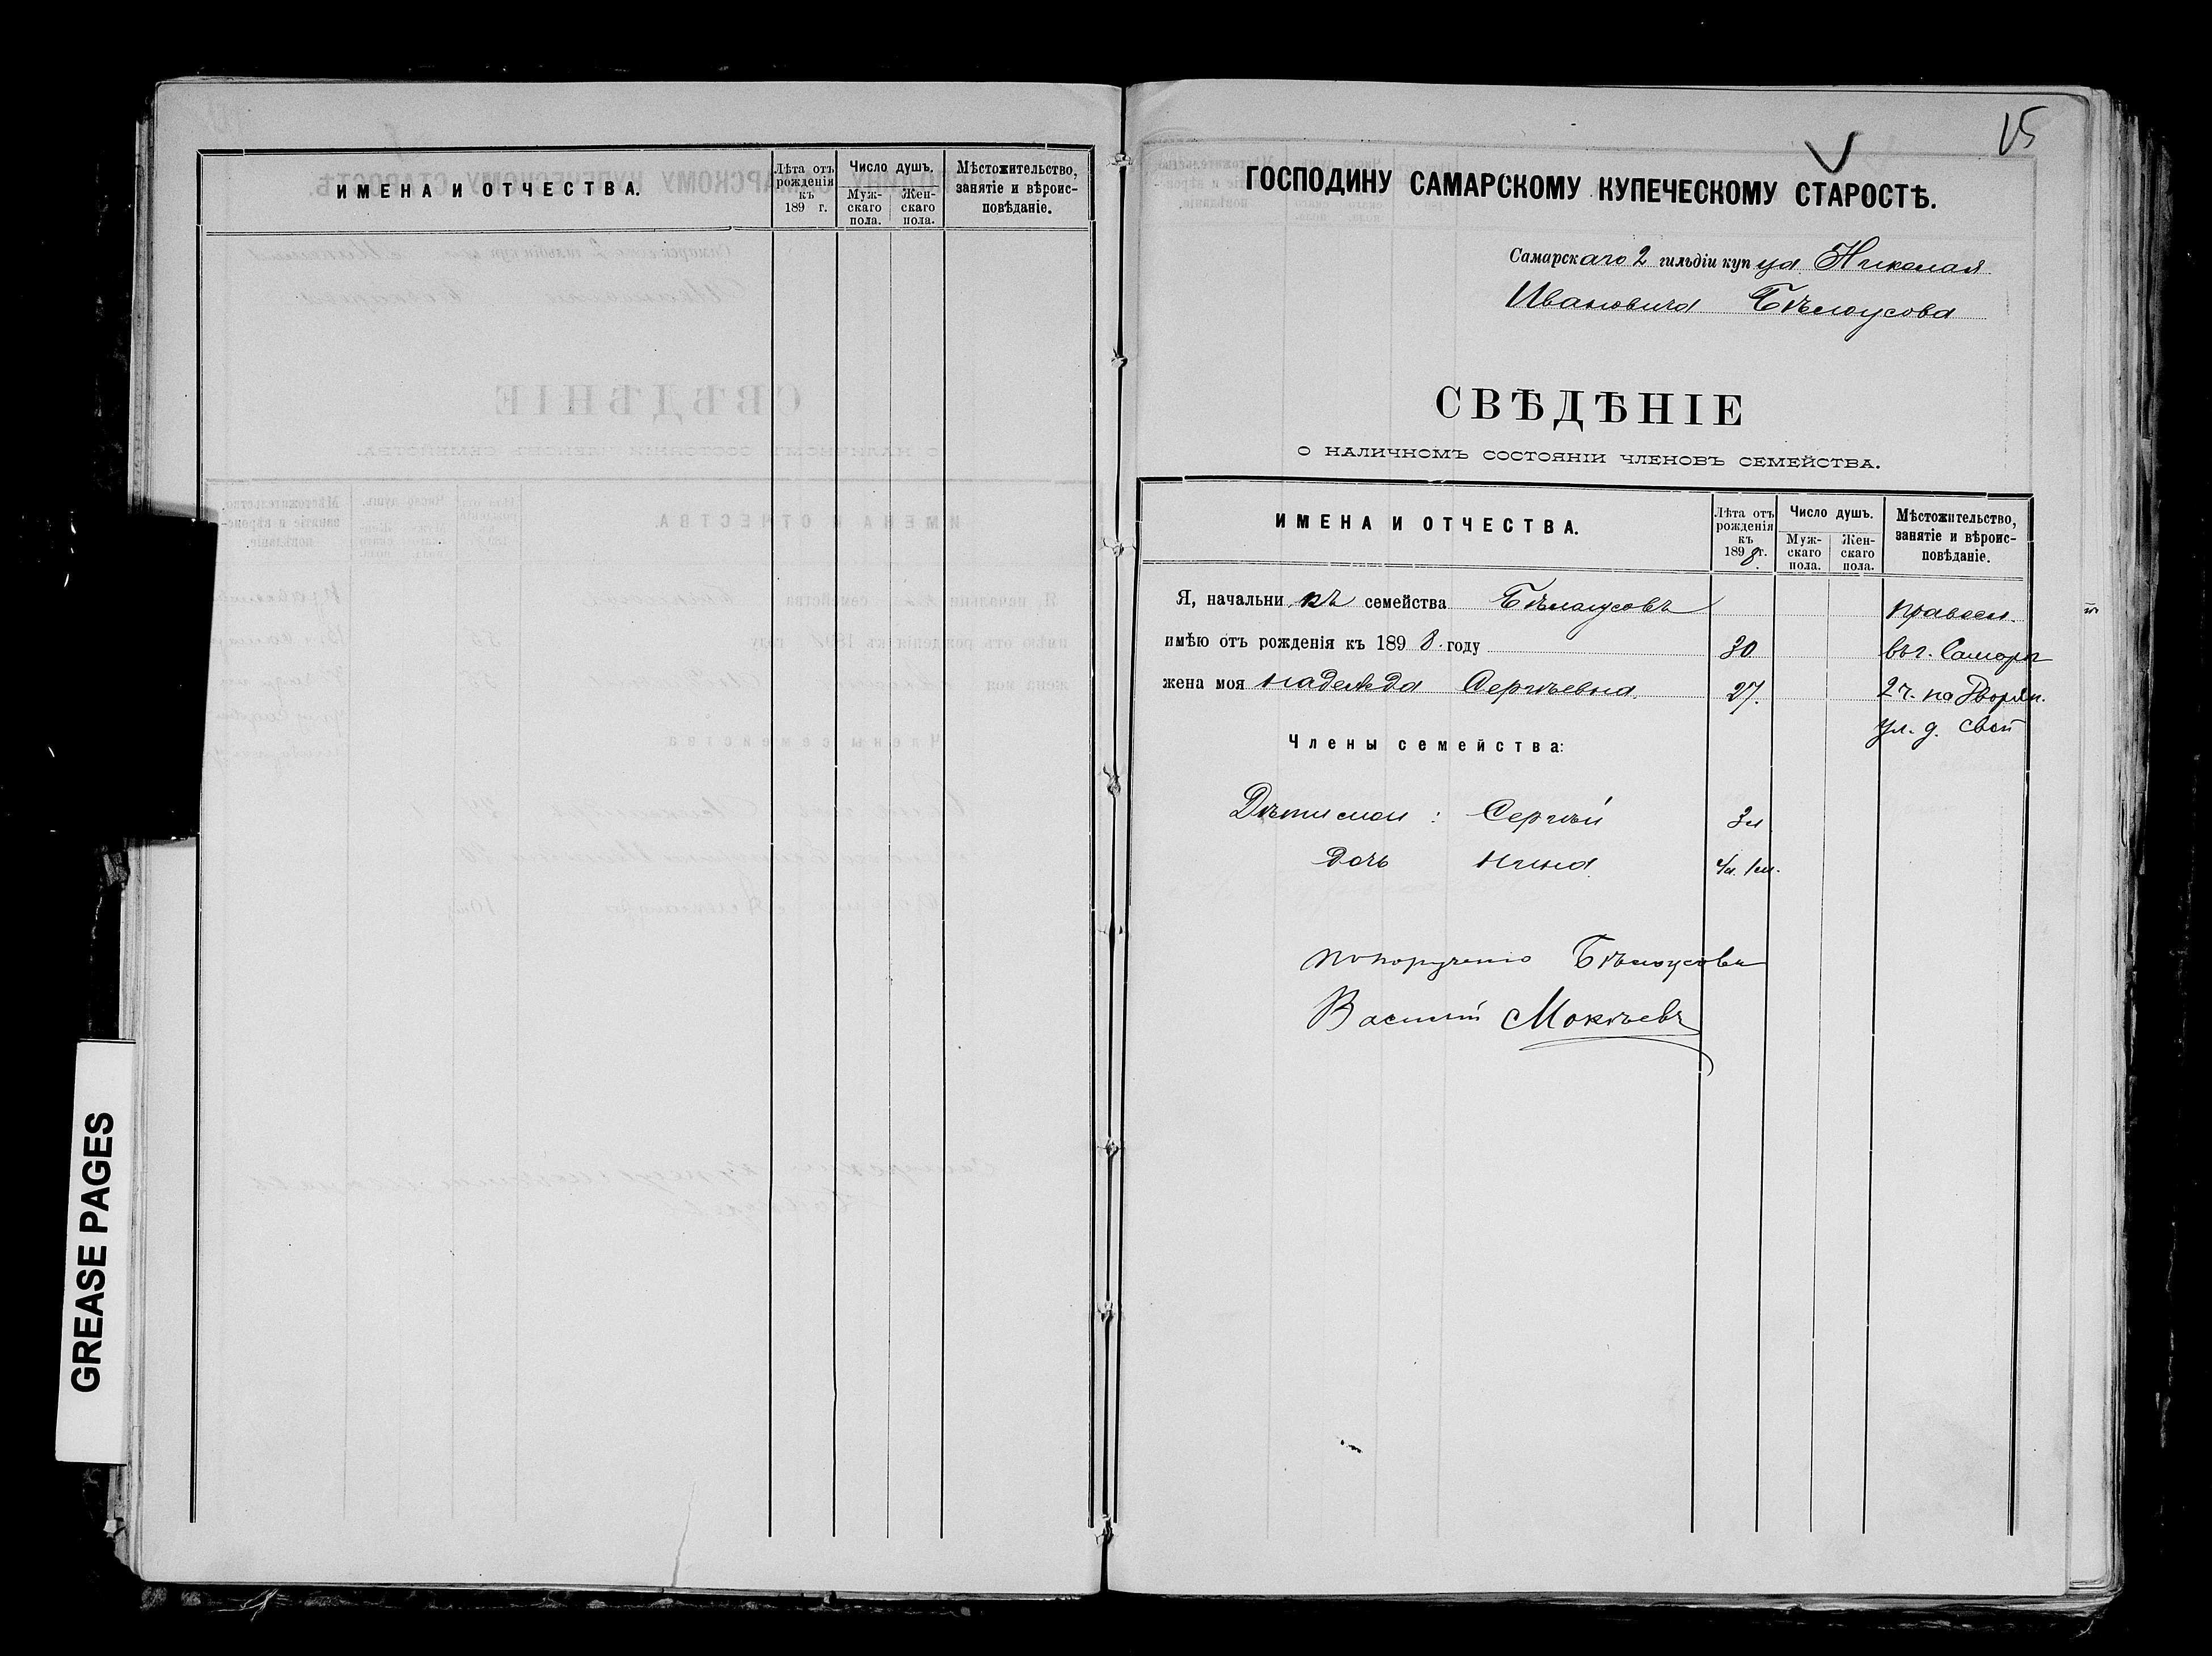 ИМЕНА И ОТЧЕСТВА.
Лѣта отъ рожденія къ 189 г.
Число душъ.
Мужскаго пола.
Женскаго пола.
Мѣстожительство, занятіе и вѣроисповѣданіе.
GREASE PAGES
15
ГОСПОДИНУ САМАРСКОМУ КУПЕЧЕСКОМУ СТАРОСТѢ.
Самарскаго 2 гильдіи купца Николая
Ивановича Бѣлоусова
СВѢДѢНІЕ
О НАЛИЧНОМЪ СОСТОЯНІИ ЧЛЕНОВЪ СЕМЕЙСТВА.
ИМЕНА И ОТЧЕСТВА.
Лѣта отъ рожденія къ 1898 г.
Число душъ.
Мужскаго пола.
Женскаго пола.
Мѣстожительство, занятіе и вѣроисповѣданіе.
Я, начальникъ семейства Бѣлоусовъ
имѣю отъ рожденія къ 1898 году 30 в г. Самарѣ
жена моя Надежда Сергѣевна 27. 2 ч. на Дворян.
ул. д. свой
Члены семейства:
Дѣти мои: Сергѣй 3 л
Дочь Нина
По порученію Бѣлоусова
Василій Мокѣевъ